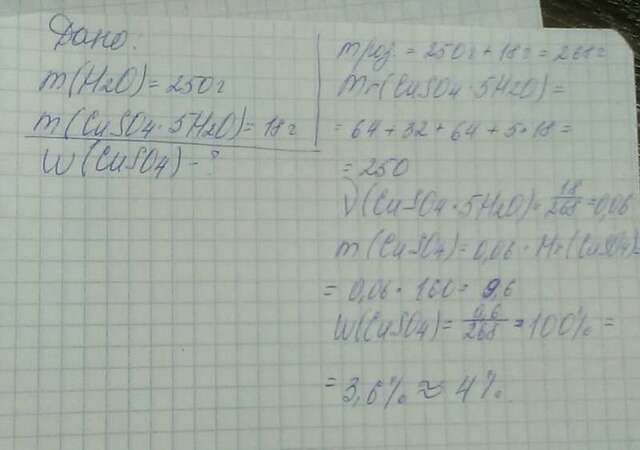 Дано:
m(H2O) = 250г
m(CuSO4·5H2O) = 18г
W(CuSO4) - ?
mроз. = 250г + 18г = 268г
Mr(CuSO4·5H2O) =
= 64 + 32 + 64 + 5·18 =
= 250
ν(CuSO4·5H2O) = 18/268 = 0,06
m(CuSO4) = 0,06 · Mr(CuSO4) =
= 0,06 · 160 = 9,6
W(CuSO4) = 9,6/268 · 100% =
= 3,6% ≈ 4%